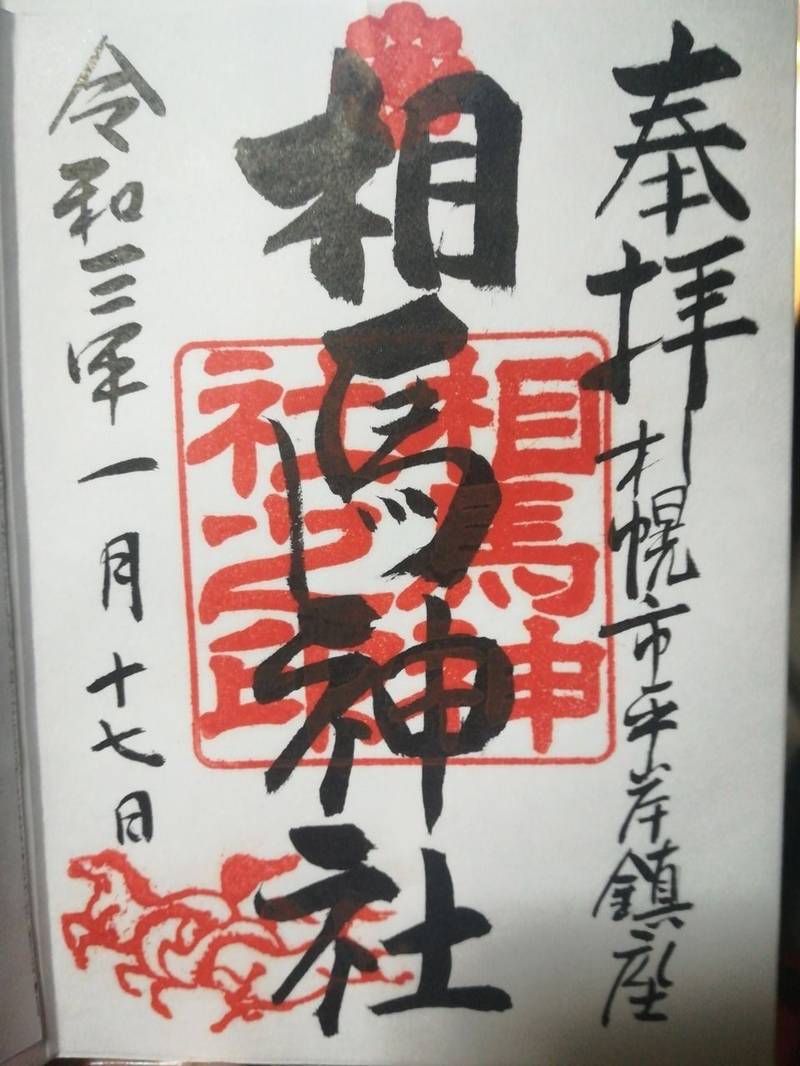 奉拝
札幌市平岸鎮座
相馬神社
相馬神
社之印
令和三年一月十七日